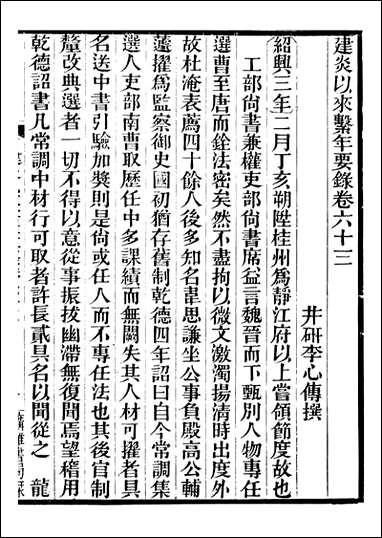 建炎以來繫年要錄卷六十三
井研李心傳撰
紹興三年二月丁亥朔陞桂州爲靜江府以上嘗領節度故也
工部尚書兼權吏部尚書席益言魏晉而下甄別人物專任
選曹至唐而銓法密矣然不盡拘以微文激濁揚清時出度外
故杜淹表薦四十餘人後多知名韋思謙坐公事負殿高公輔
擢爲監察御史國初猶存舊制乾德四年詔曰自今常調集
選人吏部南曹取歷任中多課績而無闕失其人材可擢者具
名送中書引驗加奬則是尚或任人而不專任法也其後官制
釐改典選者一切不得以意從事振拔幽滯無復聞焉望稽用
乾德詔書凡常調中材行可取者許長貳具名以聞從之　龍